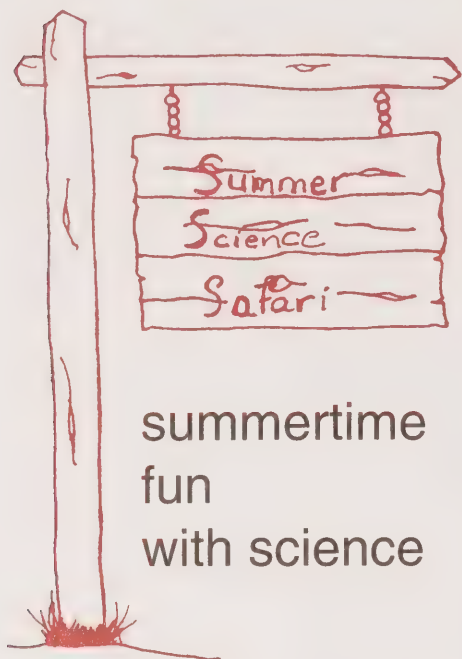 Summer
Science
Safari
summertime
fun
with science